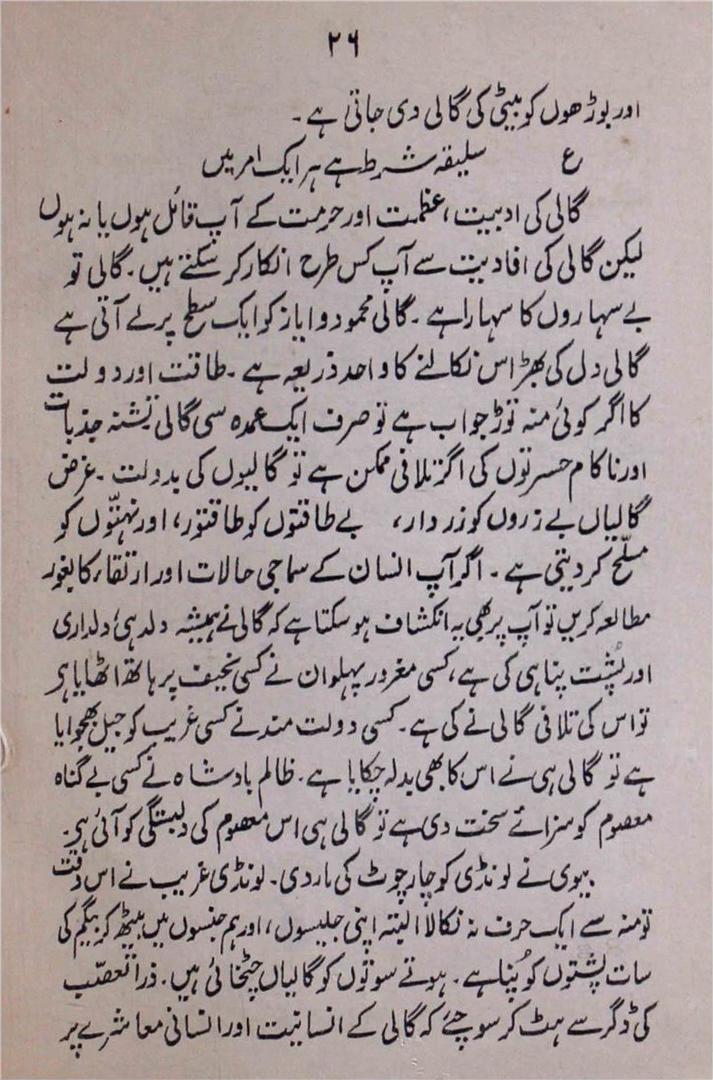 ۲۶
اور بوڑھوں کو بیٹی کی گالی دی جاتی ہے۔
ع سلیقہ شرط ہے ہر ایک امر میں
گالی کی ادبیت، عظمت اور حرمت کے آپ قائل ہوں یا نہ ہوں
لیکن گالی کی افادیت سے آپ کس طرح انکار کر سکتے ہیں۔ گالی تو
بے سہاروں کا سہارا ہے۔ گالی محمود و ایاز کو ایک سطح پر لے آتی ہے
گالی دل کی بھڑاس نکالنے کا واحد ذریعہ ہے۔ طاقت اور دولت
کا اگر کوئی منہ توڑ جواب ہے تو صرف ایک عمدہ سی گالی تشنہ جذبات
اور ناکام حسرتوں کی اگر تلافی ممکن ہے تو گالیوں کی بدولت۔ غرض
گالیاں بے زروں کو زردار، بے طاقتوں کو طاقتور، اور نہتّوں کو
مسلّح کر دیتی ہے۔ اگر آپ انسان کے سماجی حالات اور ارتقاء کا بغور
مطالعہ کریں تو آپ پر بھی یہ انکشاف ہو سکتا ہے کہ گالی نے ہمیشہ دلدہی، دلداری
اور پُشت پناہی کی ہے، کسی مغرور پہلوان نے کسی نحیف پر ہاتھ اٹھایا ہر
تو اس کی تلافی گالی نے کی ہے۔ کسی دولت مند نے کسی غریب کو جیل بھجوایا
ہے تو گالی ہی نے اس کا بھی بدلہ چکایا ہے۔ ظالم بادشاہ نے کسی بے گناہ
معصوم کو سزائے سخت دی ہے تو گالی ہی اس معصوم کی دلبستگی کو آئی ہر۔
بیوی نے لونڈی کو چار چوٹ کی مار دی۔ لونڈی غریب نے اس وقت
تو منہ سے ایک حرف نہ نکالا البتہ اپنی جلیسوں، اور ہم جنسوں میں بیٹھ کر بیگم کی
سات پشتوں کو پُنا ہے۔ ہوتے سوتوں کو گالیاں چٹخائی ہیں۔ ذرا تعصّب
کی ڈگر سے ہٹ کر سوچئے کہ گالی کے انسانیت اور انسانی معاشرے پر